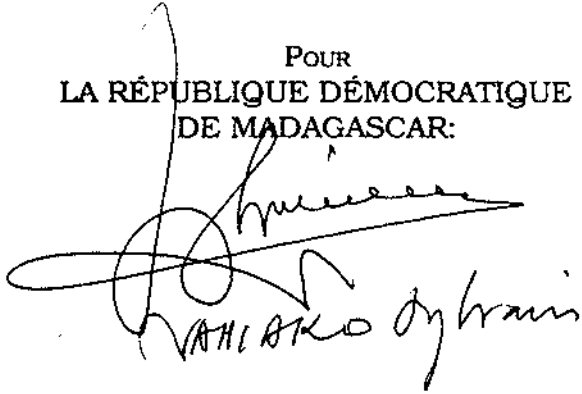 POUR
LA RÉPUBLIQUE DÉMOCRATIQUE
DE MADAGASCAR:
Sylvain